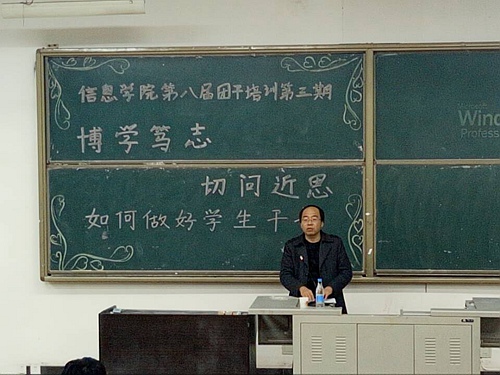 信息学院第八届团干培训第三期
博学笃志
切问近思
如何做好学生干
Wind
Profess